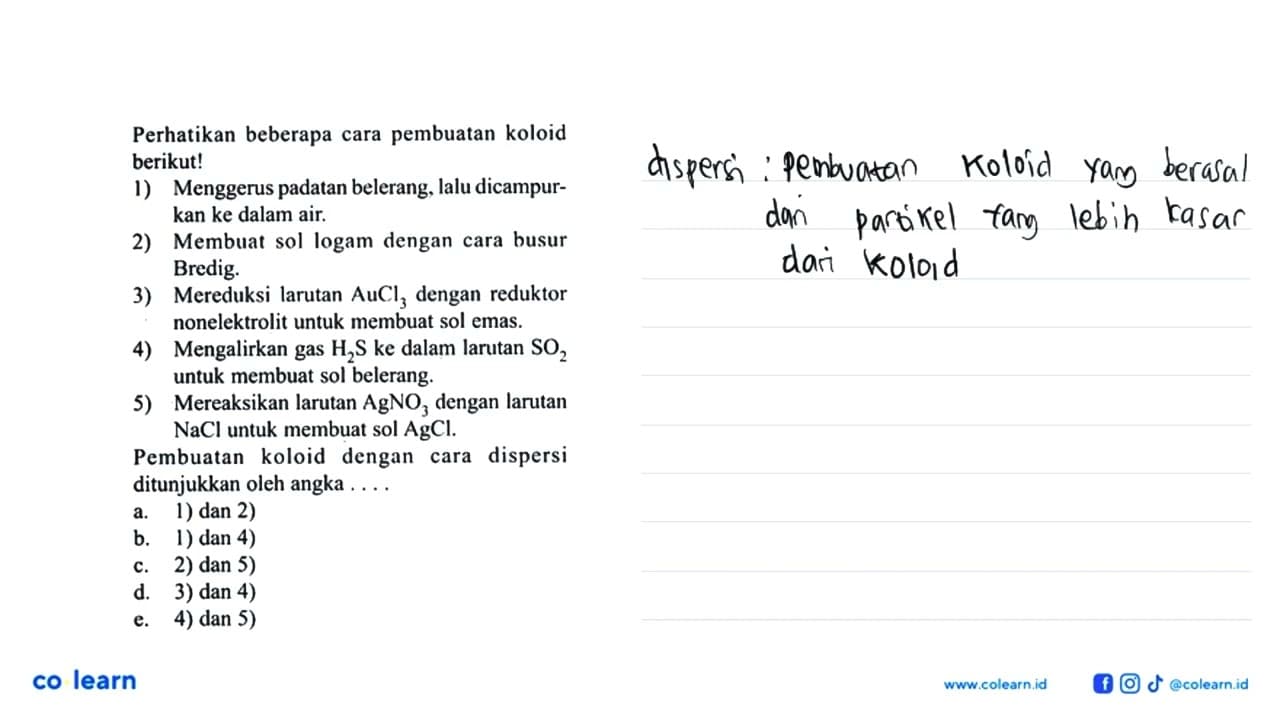 Perhatikan beberapa cara pembuatan koloid
berikut!
1) Menggerus padatan belerang, lalu dicampur-
kan ke dalam air.
2) Membuat sol logam dengan cara busur
Bredig.
3) Mereduksi larutan AuCl₃ dengan reduktor
nonelektrolit untuk membuat sol emas.
4) Mengalirkan gas H₂S ke dalam larutan SO₂
untuk membuat sol belerang.
5) Mereaksikan larutan AgNO₃ dengan larutan
NaCl untuk membuat sol AgCl.
Pembuatan koloid dengan cara dispersi
ditunjukkan oleh angka . . . .
a. 1) dan 2)
b. 1) dan 4)
c. 2) dan 5)
d. 3) dan 4)
e. 4) dan 5)
dispersi : pembuatan koloid yang berasal
dari partikel yang lebih kasar
dari koloid
co learn
www.colearn.id @colearn.id